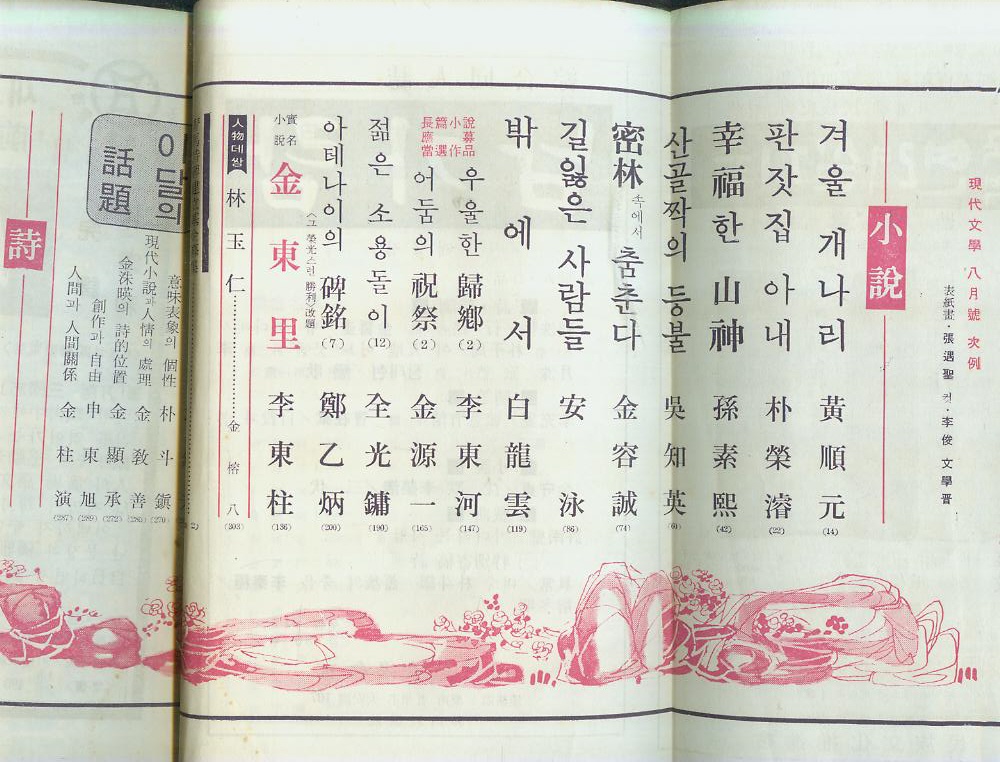 現代文學 八月號 次例
表紙畫·張遇聖 컷·李俊 文學晋
小說
겨울 개나리 黃順元 (14)
판잣집 아내 朴榮濬 (22)
幸福한 山神 孫素熙 (42)
산골짝의 등불 吳知英
密林 속에서 춤춘다 金容誠 (74)
길잃은 사람들 安泳 (86)
밖에서 白龍雲 (119)
長篇小說
應募
當選作品
우울한 歸鄕 (2) 李東河 (147)
어둠의 祝祭 (2) 金源一 (165)
젊은 소용돌이 (12) 全光鏞 (190)
아테나이의 碑銘 (7) 鄭乙炳 (200)
〈그 榮光스런 勝利〉改題
實名
小說
金東里 李東柱 (136)
人物데쌍
林玉仁 金榕八 (303)
이달의
話題
意味表象의 個性 朴斗鎭 (270)
現代小說과 人情의 處理 金敎善 (280)
金洙暎의 詩的位置 金顯承 (272)
創作과 自由 申東旭 (289)
人間과 人間關係 金柱演 (287)
詩